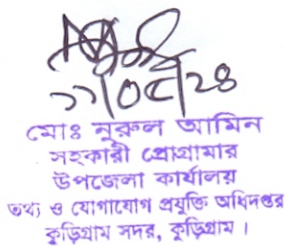 ১১/০৫/২৪
মোঃ নুরুল আমিন
সহকারী প্রোগ্রামার
উপজেলা কার্যালয়
তথ্য ও যোগাযোগ প্রযুক্তি অধিদপ্তর
কুড়িগ্রাম সদর, কুড়িগ্রাম ।